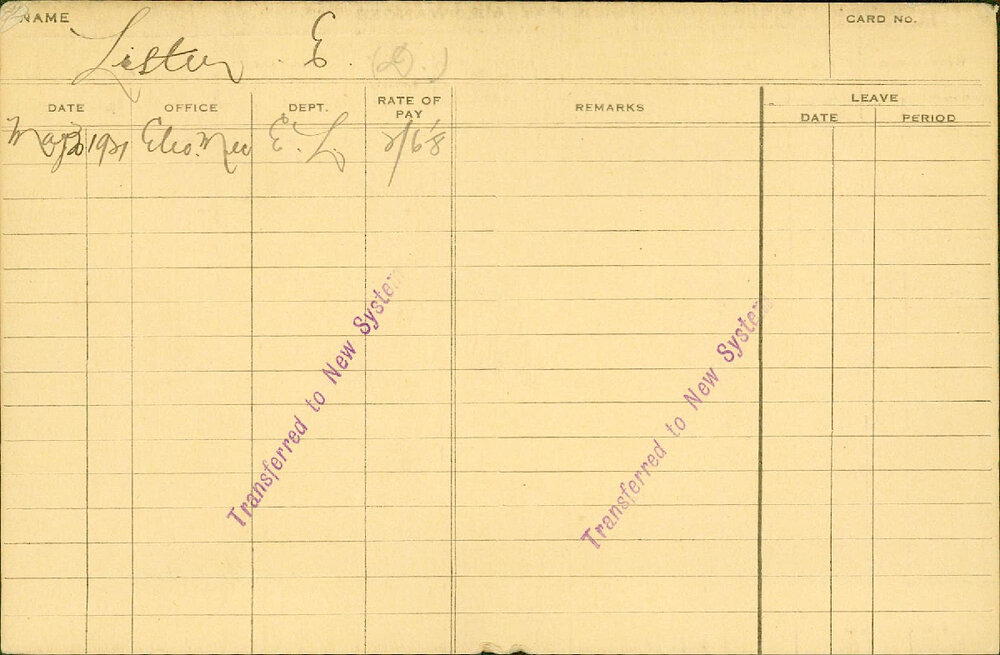 NAME
Lister E. (D.)
CARD No.
DATE OFFICE DEPT. RATE OF PAY REMARKS LEAVE
DATE PERIOD
1921 Elec. Mec E. L. 2/6
Transferred to New System
Transferred to New System